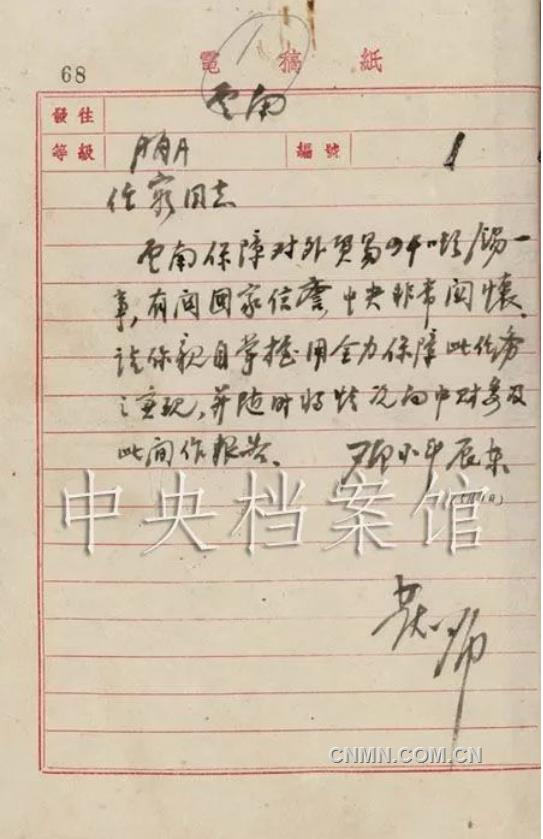 68
電 稿 紙
發往 云南
等級 AAAA 編號 1
任穷同志
云南保障对外贸易四千吨锡一
事，有关国家信誉，中央非常关怀，
请你亲自掌握用全力保障此任务
之实现，并随时将情况向中财委及
此间作报告。
邓小平 辰东
(5月1日)
中央档案馆
CNMN.COM.CN